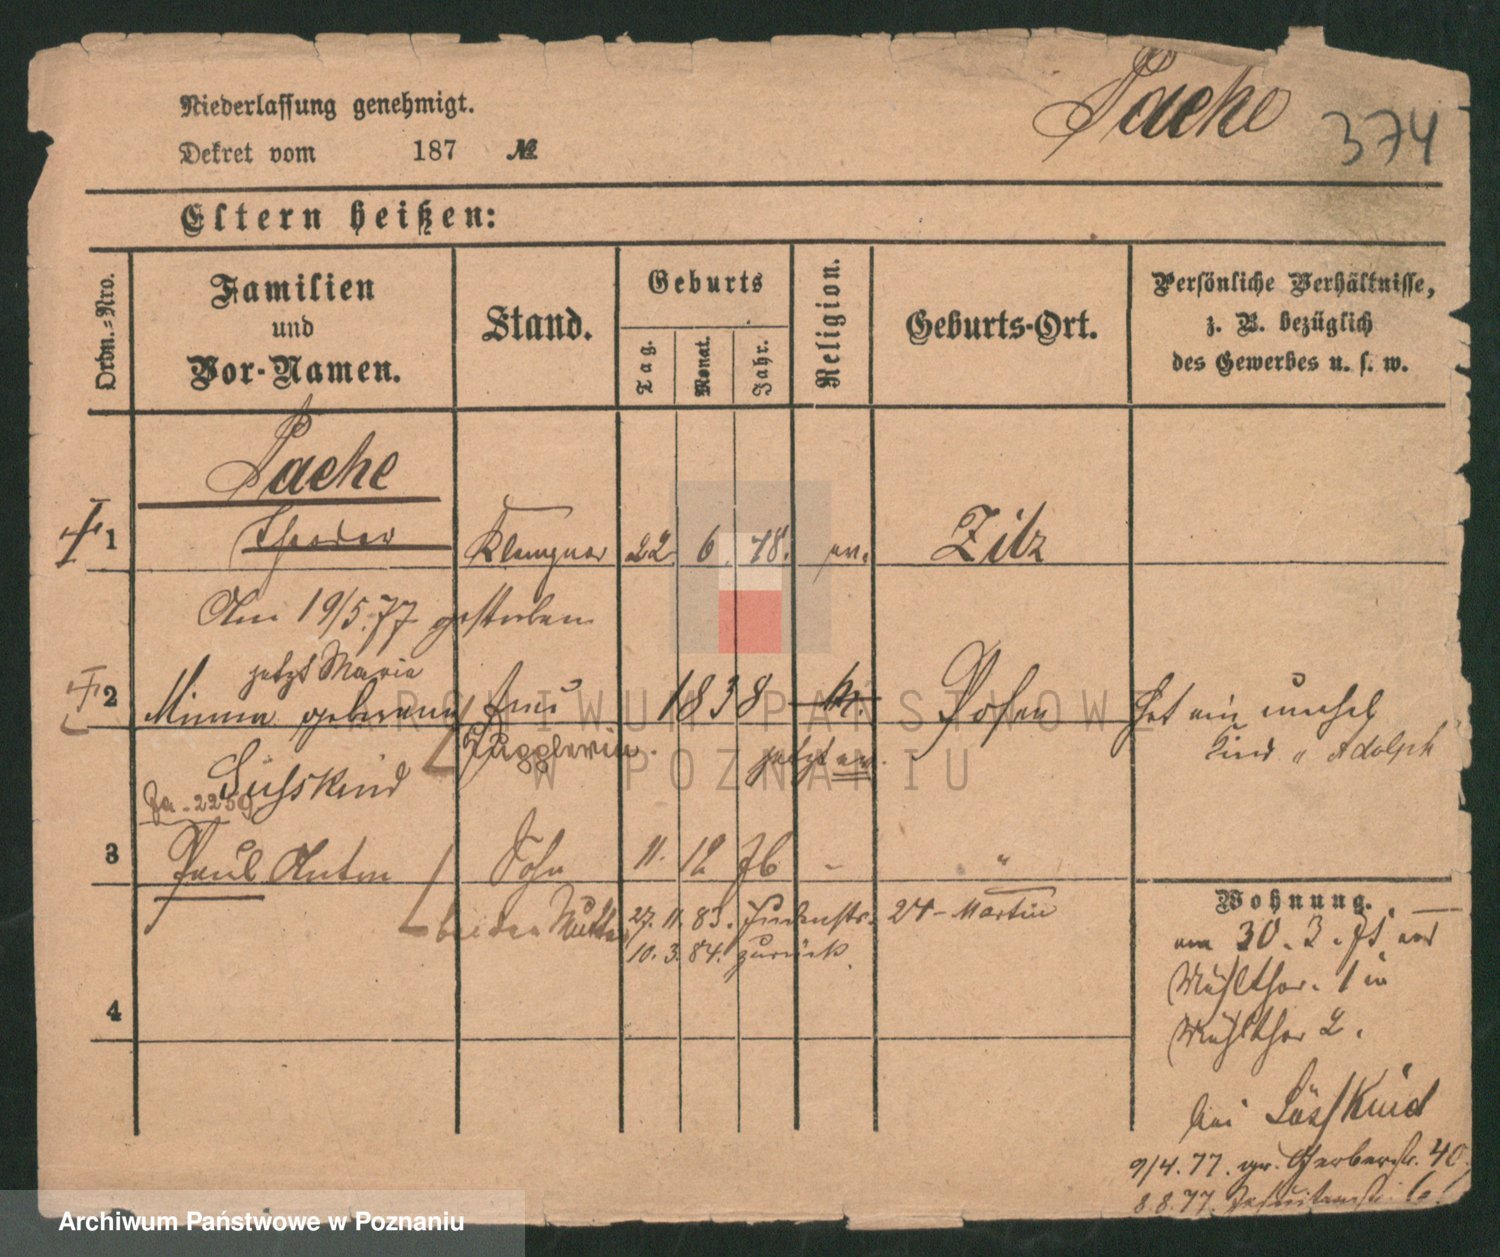 Niederlassung genehmigt.
Dekret vom 187 №
Pache
374
Eltern heißen:
Ordn.=Nro.
Familien
und
Vor-Namen.
Stand.
Geburts
Tag.
Monat.
Jahr.
Religion.
Geburts-Ort.
Persönliche Verhältnisse,
z. B. bezüglich
des Gewerbes u. s. w.
Pache
1 Theodor Klempner 22. 6. 48. ev. Zitz
Am 19/5.77 gestorben
jetzt Maria
2 Minna geborene Frau 1838 Posen hat ein unehel
Kind Adolph
Süsskind jetzt ev.
3 Paul Anton Sohn 11. 12 76 - "
Wohnung.
beider Mutter 27. 11. 83. Judenstr. 24 - Martin
10. 3. 84. zurück.
am 30. 3. 75 von
Mühlthor. 1 in
Mühlthor 2.
4
bei Süsskind
9/4. 77. gr. Gerberstr. 40.
8. 8. 77. Jesuitenstr.
ARCHIWUM PAŃSTWOWE
W POZNANIU
Archiwum Państwowe w Poznaniu